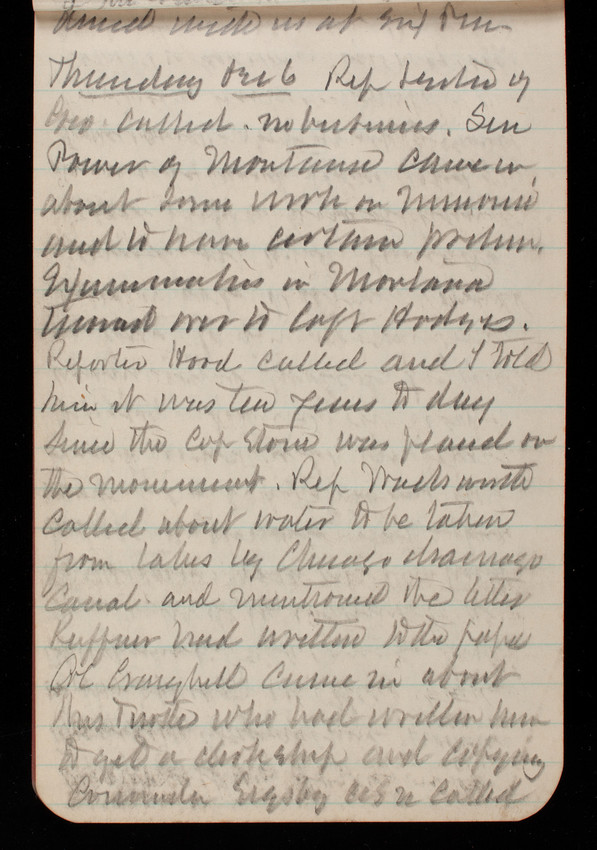 dined with us at six P.m.
Thursday Dec 6 Rep of
called. no business. Sen
Power of Montana came in
about some work on Missouri
and to have certain prelim.
Examination in Montana
turned over to Capt Hodges.
Reporter Hood called and I told
him it was ten years to day
since the Cap Stone was placed on
the monument. Rep Wadsworth
called about water to be taken
from lakes by Chicago drainage
Canal and mentioned the letter
Ruffner had written to the paper
Col Craighill came in about
who had written him
to get a clerkship and copying
Commander Sigsby USN called